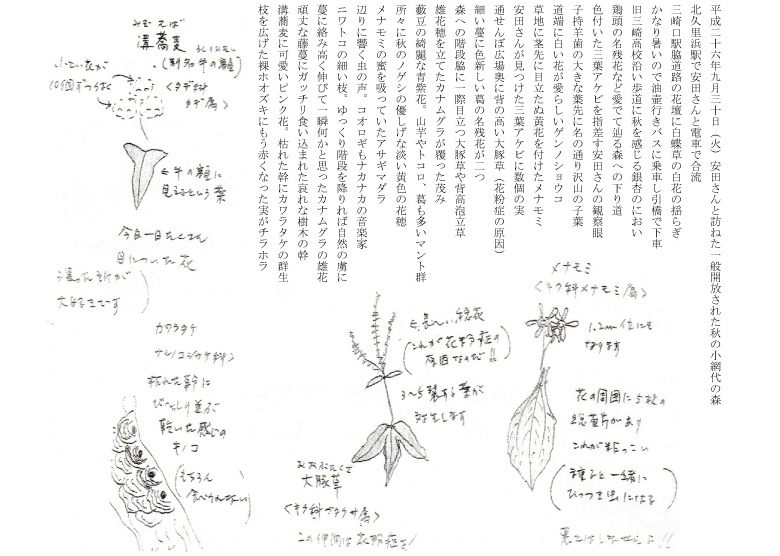 平成二十六年九月三十日（火）安田さんと訪ねた一般開放された秋の小網代の森
北久里浜駅で安田さんと電車で合流
三崎口駅脇道路の花壇に白蝶草の白花の揺らぎ
かなり暑いので油壷行きバスに乗車し引橋で下車
旧三崎高校沿い歩道に秋を感じる銀杏のにおい
鶏頭の名残花など愛でて辿る森への下り道
色付いた三葉アケビを指差す安田さんの観察眼
子持羊歯の大きな葉先に名の通り沢山の子葉
道端に白い花が愛らしいゲンノショウコ
草地に茎先に目立たぬ黄花を付けたメナモミ
安田さんが見つけた三葉アケビに数個の実
通せんぼ広場奥に背の高い大豚草（花粉症の原因）
細い蔓に色新しい葛の名残花が二つ
森への階段脇に一際目立つ大豚草や背高泡立草
雄花穂を立てたカナムグラが覆った茂み
藪豆の綺麗な青紫花。山芋やトコロ、葛も多いマント群
所々に秋のノゲシの優しげな淡い黄色の花穂
メナモミの蜜を吸っていたアサギマダラ
辺りに響く虫の声。コオロギもナカナカの音楽家
ニワトコの細い枝。ゆっくり階段を降りれば自然の虜に
蔓に絡み高く伸びて一瞬何かと思ったカナムグラの雄花
頑丈な藤蔓にガッチリ食い込まれた哀れな樹木の幹
溝蕎麦に可愛いピンク花。枯れた幹にカワラタケの群生
枝を広げた裸ホオズキにもう赤くなった実がチラホラ
みぞそば
溝蕎麦
(別名牛の額)
小さい花が
10個ずつらく
<タデ科
タデ属>
牛の額に
見えるという葉
今日一日たくさん
目についた花
湿った所が
大好きです
カワラタケ
枯れた幹に
びっしり並ぶ
乾いた感じの
キノコ
(もちろん
食べられない)
長い総花
(これが花粉症の
原因なのだ!!)
3〜5裂する葉が
対生します
おおぶたくさ
大豚草
<キク科ブタクサ属>
この仲間は花粉症を!
メナモミ
<キク科メナモミ属>
1.2m位にも
なります
花の周囲に5枚の
総苞片があり
これが粘っこい
(種子と一緒に
ひっつき虫になる)